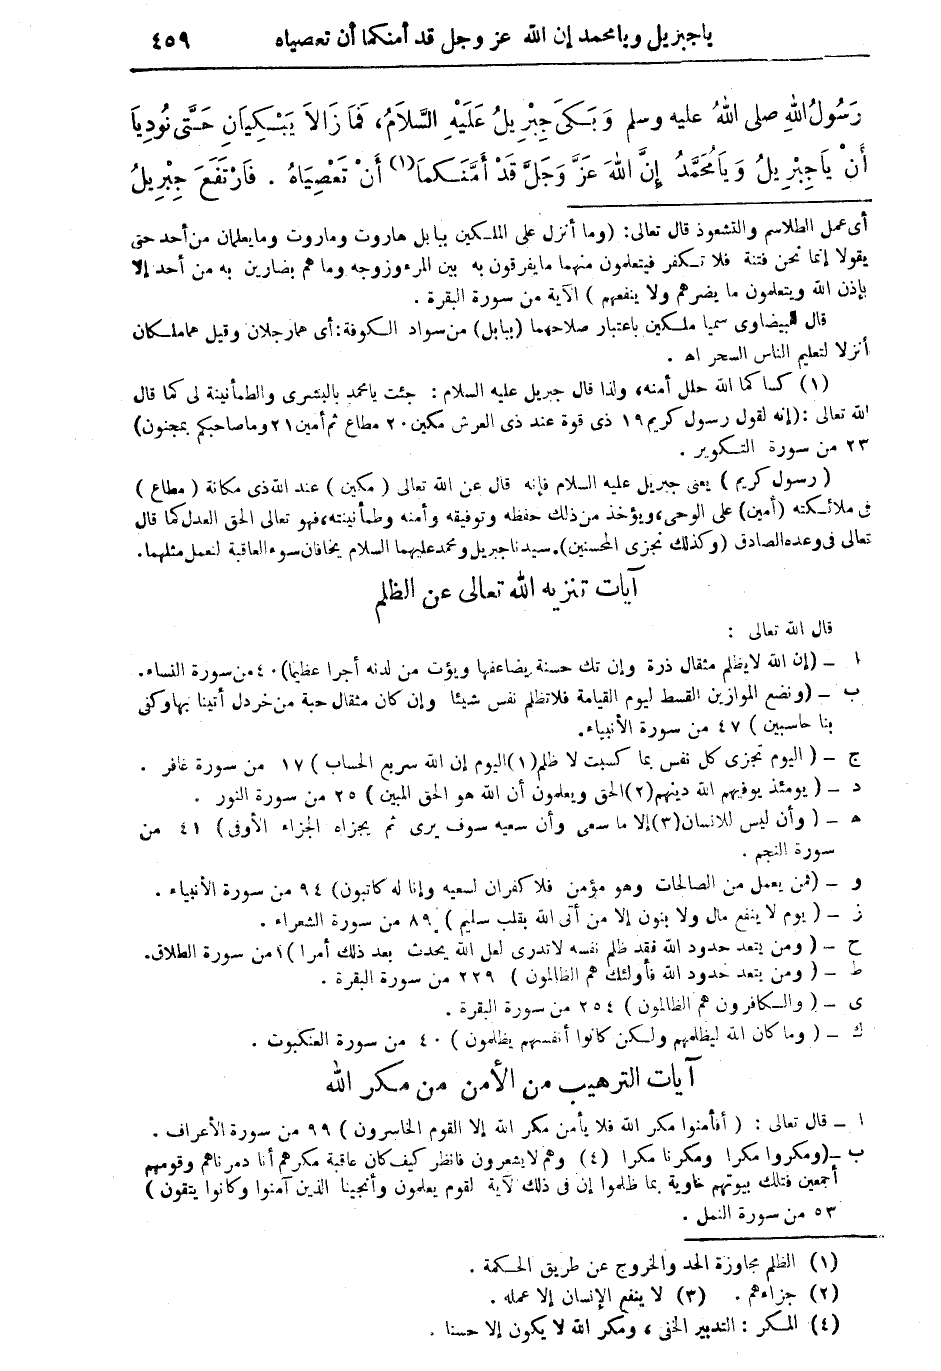 ياجبريل ويامحمد إن الله عز وجل قد أمنكما أن تعصياه ٤٥٩
رَسُولُ اللهِ صلى اللهُ عليه وسلم وَبَكَى جِبْرِيلُ عَلَيْهِ السَّلَامُ، فَمَا زَالاَ يَبْكِيَانِ حَتَّى نُودِيَا
أَنْ يَاجِبْرِيلُ وَيَامُحَمَّدُ إِنَّ اللهَ عَزَّ وَجَلَّ قَدْ أَمَّنَكُمَا(١) أَنْ تَعْصِيَاهُ . فَارْتَفَعَ جِبْرِيلُ
أى عمل الطلاسم والتشعوذ قال تعالى: (وما أنزل على الملكين ببابل هاروت وماروت وما يعلمان من أحد حتى
يقولا إنما نحن فتنة فلا تكفر فيتعلمون منهما ما يفرقون به بين المرء وزوجه وما هم بضارين به من أحد إلا
بإذن الله ويتعلمون ما يضرهم ولا ينفعهم ) الآية من سورة البقرة .
قال البيضاوى سميا ملكين باعتبار صلاحهما (ببابل) من سواد الكوفة: أى هما رجلان وقيل هما ملكان
أنزلا لتعليم الناس السحر اه .
(١) كساكما الله حلل أمنه، ولذا قال جبريل عليه السلام : جئت يامحمد بالبشرى والطمأنينة لى كما قال
الله تعالى :(إنه لقول رسول كريم ١٩ ذى قوة عند ذى العرش مكين ٢٠ مطاع ثم أمين ٢١ وما صاحبكم بمجنون)
٢٣ من سورة التكوير .
( رسول كريم ) يعنى جبريل عليه السلام فإنه قال عن الله تعالى ( مكين ) عند الله ذى مكانة ( مطاع )
فى ملائكته (أمين) على الوحى، ويؤخذ من ذلك حفظه وتوفيقه وأمنه وطمأنينته، فهو تعالى الحق العدل كما قال
تعالى فى وعده الصادق (وكذلك نجزى المحسنين). سيدنا جبريل ومحمد عليهما السلام يخافان سوء العاقبة لنعمل مثلهما.
آيات تنزيه الله تعالى عن الظلم
قال الله تعالى :
ا – (إن الله لا يظلم مثقال ذرة وإن تك حسنة يضاعفها ويؤت من لدنه أجرا عظيما) ٤٠ من سورة النساء.
ب – (ونضع الموازين القسط ليوم القيامة فلا تظلم نفس شيئا وإن كان مثقال حبة من خردل أتينا بها وكفى
بنا حاسبين ) ٤٧ من سورة الأنبياء.
ج – ( اليوم تجزى كل نفس بما كسبت لا ظلم(١) اليوم إن الله سريع الحساب ) ١٧ من سورة غافر .
د – ( يومئذ يوفيهم الله دينهم(٢) الحق ويعلمون أن الله هو الحق المبين ) ٢٥ من سورة النور .
ه – ( وأن ليس للانسان(٣) إلا ما سعى وأن سعيه سوف يرى ثم يجزاه الجزاء الأوفى ) ٤١ من
سورة النجم .
و – (فمن يعمل من الصالحات وهو مؤمن فلا كفران لسعيه وإنا له كاتبون) ٩٤ من سورة الأنبياء .
ز – ( يوم لا ينفع مال ولا بنون إلا من أتى الله بقلب سليم ) ٨٩ من سورة الشعراء .
ح – ( ومن يتعد حدود الله فقد ظلم نفسه لا تدرى لعل الله يحدث بعد ذلك أمرا ) ١ من سورة الطلاق.
ط – ( ومن يتعد حدود الله فأولئك هم الظالمون ) ٢٢٩ من سورة البقرة .
ى – ( والكافرون هم الظالمون ) ٢٥٤ من سورة البقرة .
ك – ( وما كان الله ليظلمهم ولكن كانوا أنفسهم يظلمون ) ٤٠ من سورة العنكبوت .
آيات الترهيب من الأمن من مكر الله
ا – قال تعالى : ( أفأمنوا مكر الله فلا يأمن مكر الله إلا القوم الخاسرون ) ٩٩ من سورة الأعراف .
ب –(ومكروا مكرا ومكرنا مكرا (٤) وهم لا يشعرون فانظر كيف كان عاقبة مكرهم أنا دمرناهم وقومهم
أجمعين فتلك بيوتهم خاوية بما ظلموا إن فى ذلك لآية لقوم يعلمون وأنجينا الذين آمنوا وكانوا يتقون )
٥٣ من سورة النمل .
(١) الظلم مجاوزة الحد والخروج عن طريق الحكمة .
(٢) جزاءهم . (٣) لا ينفع الإنسان إلا عمله .
(٤) المكر : التدبير الخفى ، ومكر الله لا يكون إلا حسنا .